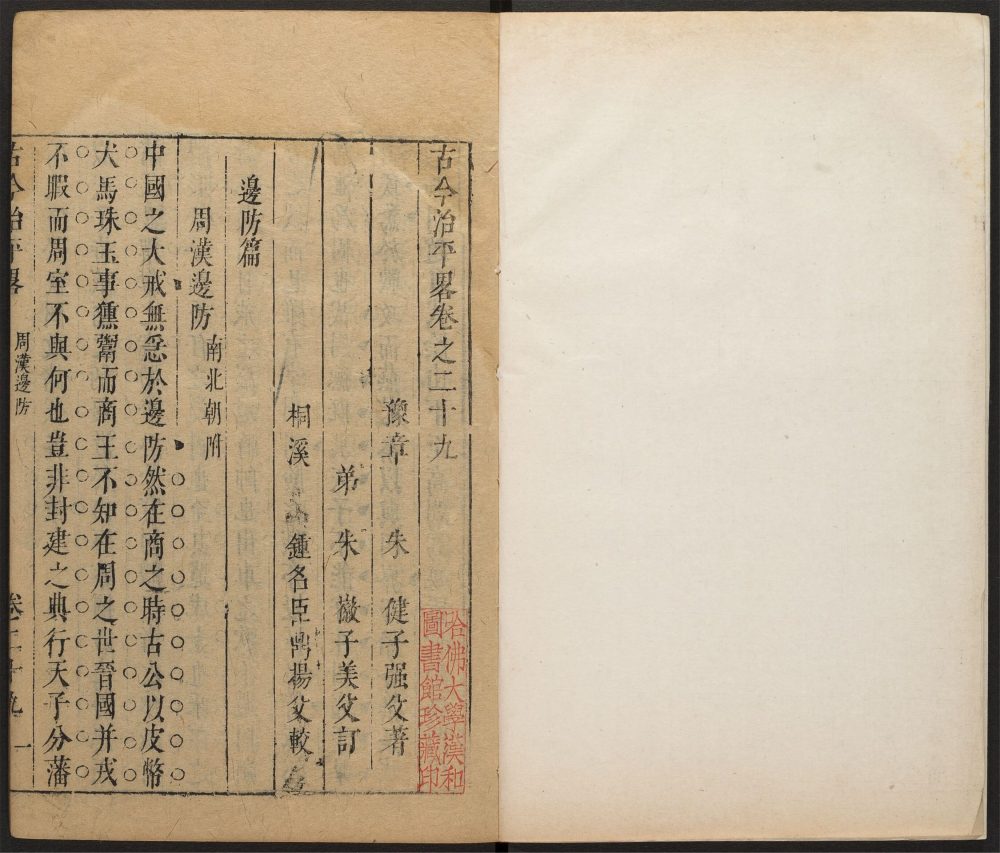 古今治平畧卷之二十九
豫章 朱 健子强父著
弟 朱 徽子美父訂
桐溪 鍾名臣鼎揚父較
邊防篇
周漢邊防 南北朝附
中國之大戒無急於邊防然在商之時古公以皮幣
犬馬珠玉事獯鬻而商王不知在周之世晉國并戎
不暇而周室不與何也豈非封建之典行天子分藩
古今治平畧 周漢邊防 卷二十九 一
哈佛大學漢和
圖書館珍藏印